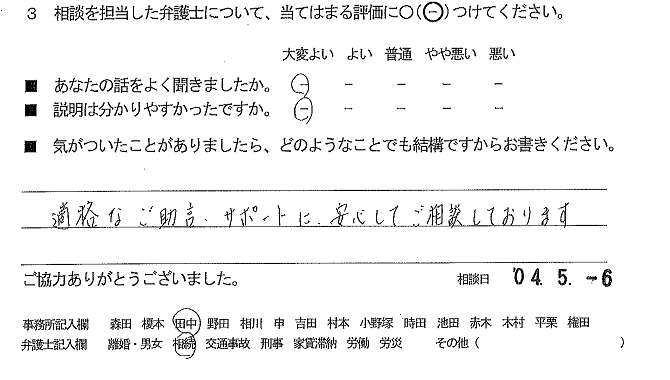 3 相談を担当した弁護士について、当てはまる評価に○(㊀)つけてください。
大変よい よい 普通 やや悪い 悪い
■ あなたの話をよく聞きましたか。 － － － － －
■ 説明は分かりやすかったですか。 － － － － －
■ 気がついたことがありましたら、どのようなことでも結構ですからお書きください。
適格なご助言、サポートに、安心してご相談しております
ご協力ありがとうございました。 相談日 '04. 5. -6
事務所記入欄 森田 榎本 田中 野田 相川 申 吉田 村本 小野塚 時田 池田 赤木 木村 平栗 権田
弁護士記入欄 離婚・男女 相続 交通事故 刑事 家賃滞納 労働 労災 その他（ ）